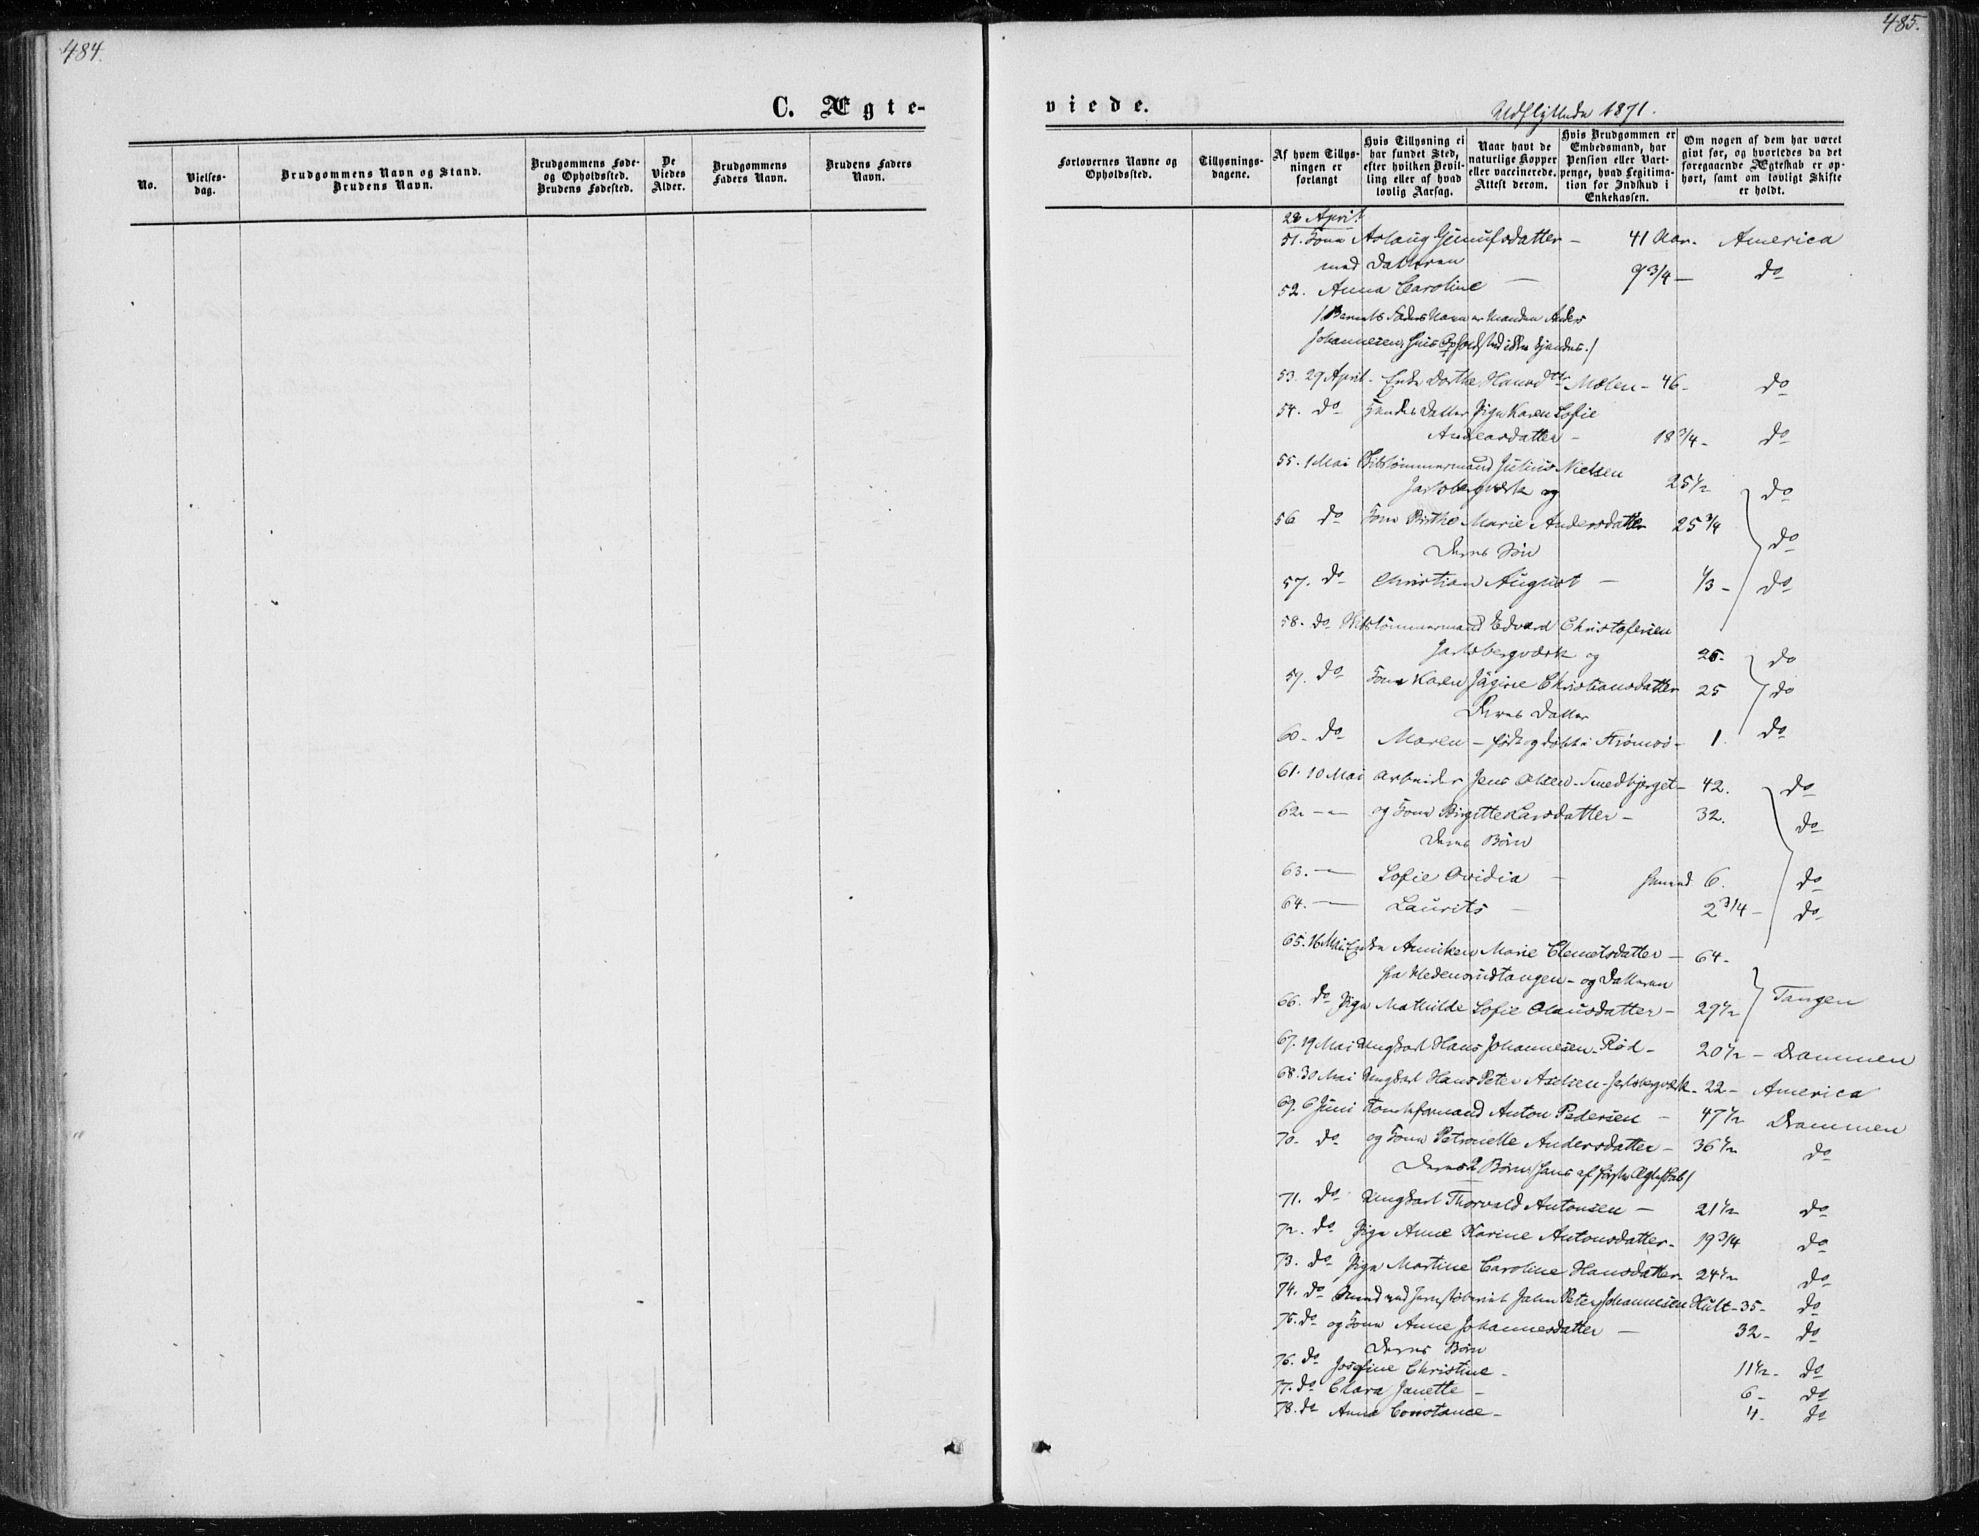 484.
C. Ægte-
No.
Vielses-
dag.
Brudgommens Navn og Stand.
Brudens Navn.
Brudgommens Føde-
og Opholdssted.
Brudens Fødested.
De
Viedes
Alder.
Brudgommens
Faders Navn.
Brudens Faders
Navn.
485.
viede.
Udflyttede 1871.
Forlovernes Navne og
Opholdssted.
Tillysnings-
dagene.
Af hvem Tillys-
ningen er
forlangt
Hvis Tillysning ei
har fundet Sted,
efter hvilken Bevil-
ling eller af hvad
lovlig Aarsag.
Naar havt de
naturlige Kopper
eller vaccinerede.
Attest derom.
Hvis Brudgommen er
Embedsmand, har
Pension eller Vart-
penge, hvad Legitima-
tion for Indskud i
Enkekassen.
Om nogen af dem har været
givt før, og hvorledes da det
foregaaende Ægteskab er op-
hørt, samt om lovligt Skifte
er holdt.
28 April
51. Kone Aslaug Gunufsdatter - 41 Aar. America
med Datteren
52. Anna Caroline - 9 3/4 - do
/Barnets Faders Navn er Manden Anders
Johannesen, hvis Opholdsted ikke kjendes./
53. 29 April - Enke Dorthe Hansdttr Mælen - 46 - do
54. do Hendes Datter Pige Karen Sofie
Andersdatter - 18 3/4 - do
55. 1 Mai Skibstømmermand Julius Nielsen
Jarlsbergværk og 25 1/2 do
56 do Kone Birthe Marie Andersdatter 25 3/4 do
Deres Søn
57. do Christian August - 1/3 - do
58. do Skibstømmermand Edvard Christofersen
Jarlsbergværk og 26. do
59. do Kone Karen Jägine Christiansdatter 25 do
Deres Datter
60 - do Maren - født og døbt i Strømsø - 1. do
61. 10 Mai Arbeider Jens Olsen - Smedbjerget - 42. do
62 - - og Kone Birgitte Larsdatter - 32. do
Deres Børn
63. - Sofie Ovidia - 6. do
64. - Laurits - 2 3/4 - do
65. 16 Mai Enke Anniken Marie Clemetsdatter - 64 -
fra Hedensrudtangen - og Datteren
66. do Pige Mathilde Sofie Olausdatter - 29 1/2 Tangen
67. 19 Mai Ungkarl Hans Johannesen - Rød - 20 1/2 - Drammen
68. 30 Mai Ungkarl Hans Peter Axelsen - Jarlsbergværk - 22 - America
69. 6 Juni Anton Pedersen - 47 1/2 Drammen
70. do og Kone Petronelle Andersdatter - 36 1/2 do
Deres 2 Børn /hans af første Ægteskab/
71. do Ungkarl Thorvald Antonsen - 21 1/2 do
72. do Pige Anne Karine Antonsdatter - 19 3/4 do
73. do Pige Martine Caroline Hansdatter - 24 1/2 do
74. do Peter Johannesen Hult - 35 - do
75. do og Kone Anne Johannesdatter - 32 - do
Deres Børn
76. do Josefine Christine - 11 1/2 - do
77. do Clara Janette - 6 - do
78. do Anne Constance - 4 - do